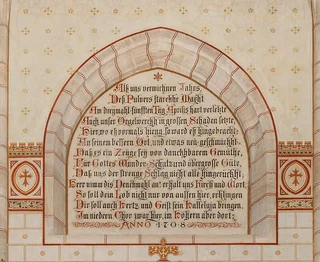 Alß uns verwichnen Jahres,
Deß Pulvers starcke Macht
Am dreymahl fünfften Tag Aprilis hart verletzte
Auch unser Orgelwerck in großen Schaden setzte,
Hier wo es vormals hieng, ward es hingebracht;
An seinen bessern Ort, und etwas neu geschmückt.
Daß es ein Zeuge sey von danckbarem Gemüthe,
Vor Gottes Wunder-Schutz und übergrosse Güte,
Daß uns der strenge Schlag nicht alle hingerückt;
Herr nimm diß Denckmahl an! erhalt uns Kirch und Wort
So soll dein Lob nicht nur von aussen hier erklingen
Dir soll auch Hertz und Geist sein Halleluja bringen,
Im niedern Chor zwar hier, im Höhern aber dort.
ANNO 1708